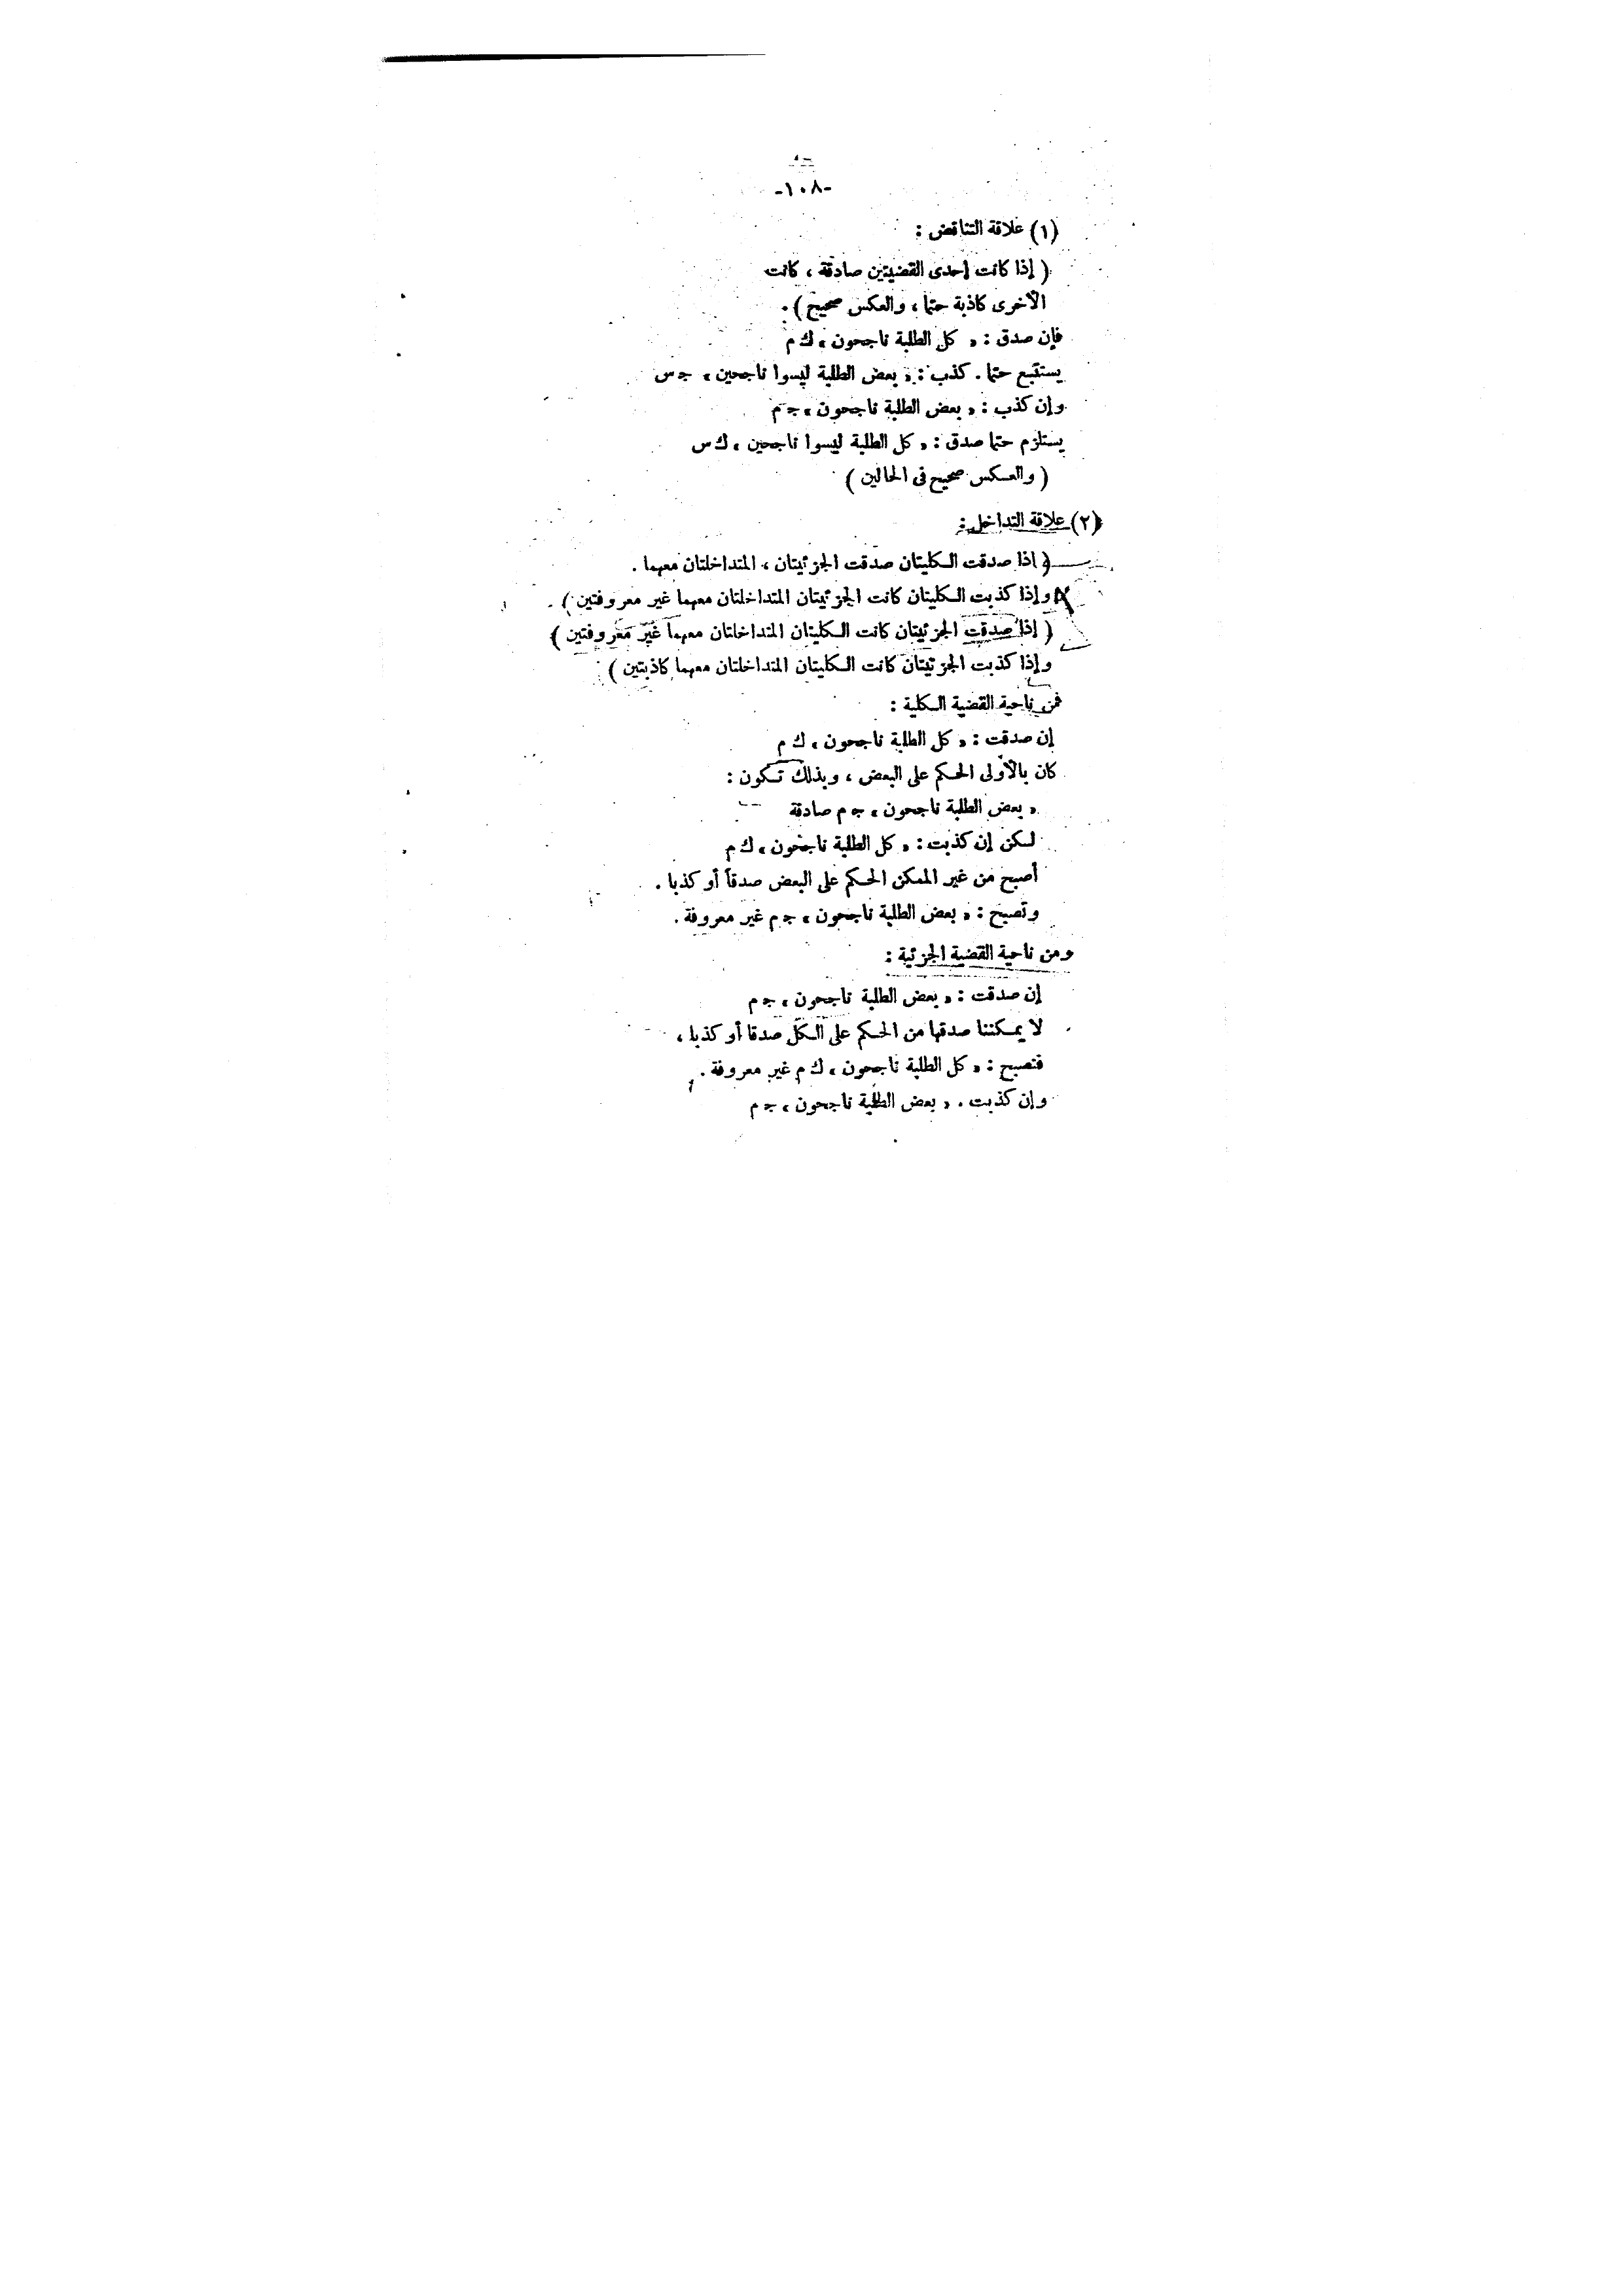 -١٠٨-
(١) علاقة التناقض :
( إذا كانت إحدى القضيتين صادقة ، كانت
الأخرى كاذبة حتما ، والعكس صحيح ) .
فإن صدق : « كل الطلبة ناجحون » ك م
يستتبع حتما . كذب : « بعض الطلبة ليسوا ناجحين » ج س
وإن كذب : « بعض الطلبة ناجحون » ج م
يستلزم حتما صدق : « كل الطلبة ليسوا ناجحين » ك س
( والعكس صحيح فى الحالين )
(٢) علاقة التداخل :
( اذا صدقت الكليتان صدقت الجزئيتان ، المتداخلتان معهما .
وإذا كذبت الكليتان كانت الجزئيتان المتداخلتان معهما غير معروفتين ) .
( إذا صدقت الجزئيتان كانت الكليتان المتداخلتان معهما غير معروفتين )
وإذا كذبت الجزئيتان كانت الكليتان المتداخلتان معهما كاذبتين )
فمن ناحية القضية الكلية :
إن صدقت : « كل الطلبة ناجحون » ك م
كان بالأولى الحكم على البعض ، وبذلك تكون :
« بعض الطلبة ناجحون » ج م صادقة
لكن إن كذبت : « كل الطلبة ناجحون » ك م
أصبح من غير الممكن الحكم على البعض صدقاً أو كذبا .
وتصبح : « بعض الطلبة ناجحون » ج م غير معروفة .
ومن ناحية القضية الجزئية :
إن صدقت : « بعض الطلبة ناجحون » ج م
لا يمكننا صدقها من الحكم على الكل صدقا أو كذبا ،
فتصبح : « كل الطلبة ناجحون » ك م غير معروفة .
وإن كذبت . « بعض الطلبة ناجحون » ج م